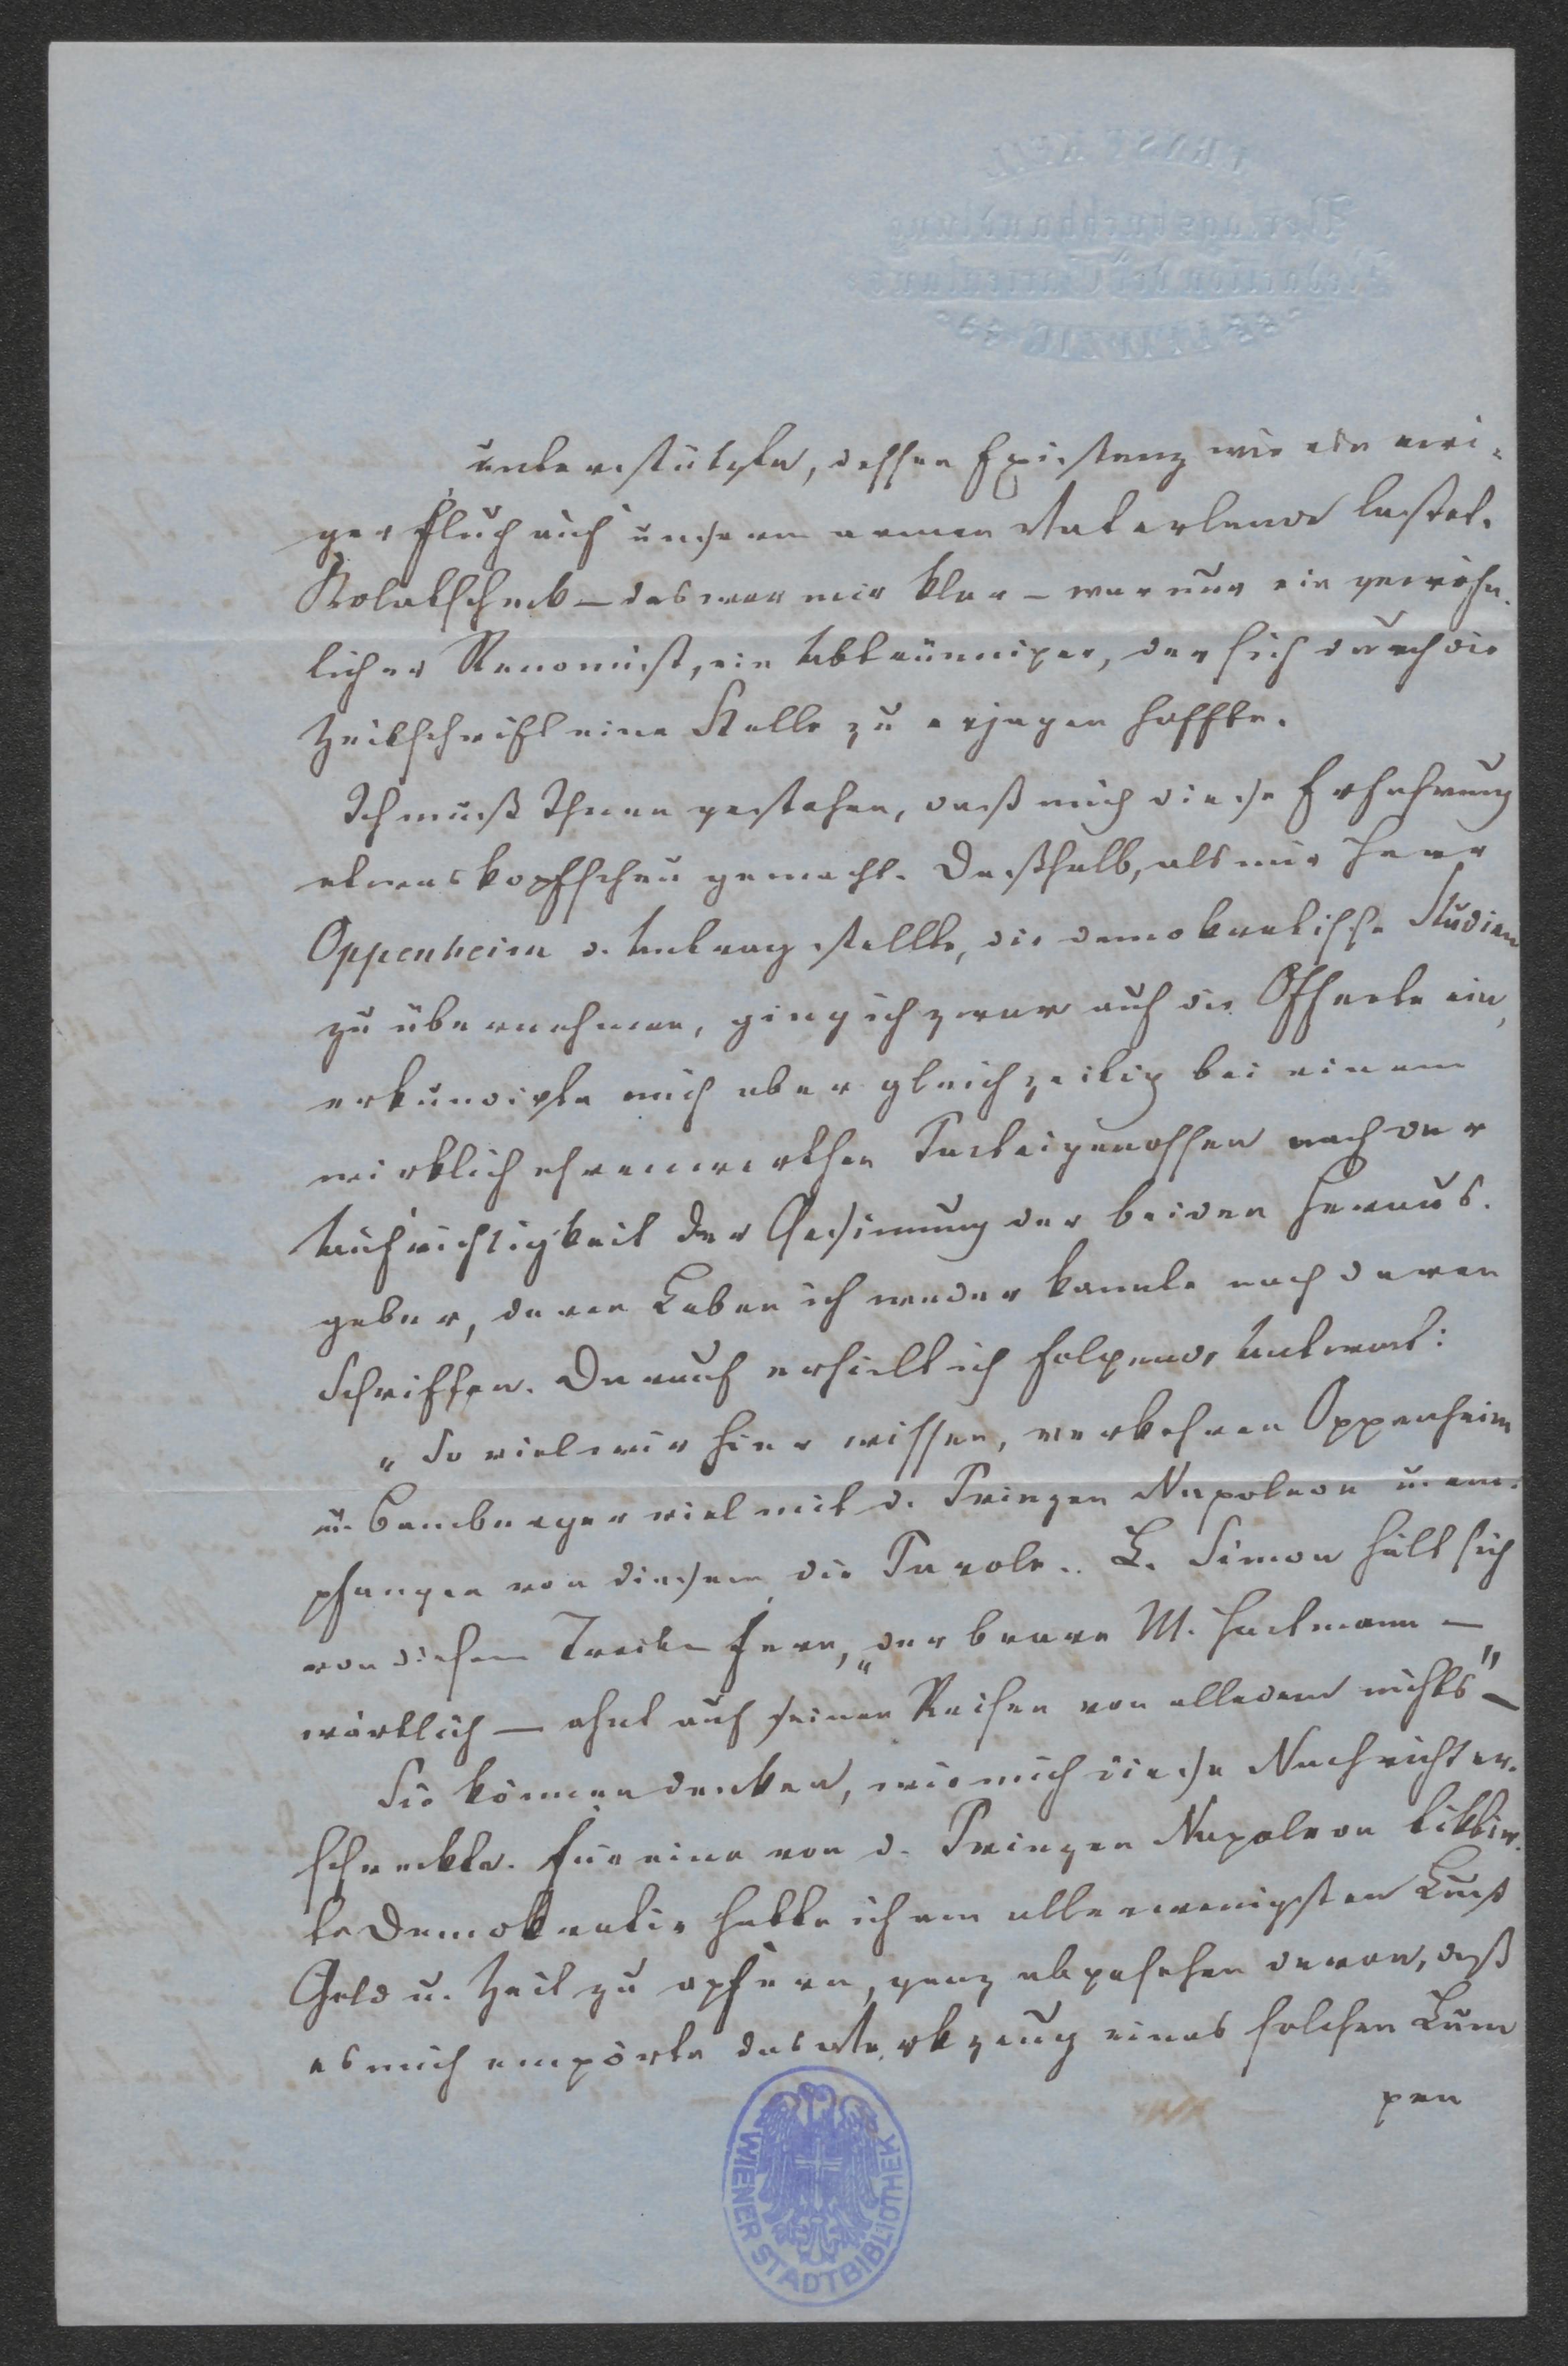 ERNST KEIL
Verlagsbuchhandlung
Redaction der Gartenlaube
LEIPZIG
unterstützte, dessen Existenz wie ein ewi-
ger Fluch auf unserm armen Vaterlande lastet.
Kolatscheck – das war mir klar – war nur ein gewöhn-
licher Renomist, ein Abtrünniger, der sich durch die
Zeitschrift eine Stelle zu erjagen hoffte.
Ich muß Ihnen gestehen, daß mich diese Erfahrung
etwas kopfscheu gemacht. Deßhalb, als mir Herr
Oppenheim d. Antrag stellte, die demokratische Studien
zu übernehmen, ging ich zwar auf die Offerte ein,
erkundigte mich aber gleichzeitig bei einem
wirklich ehrenwerthen Parteigenossen nach der
Aufrichtigkeit der Gesinnung der beiden Heraus-
geber, deren Leben ich weder kannte noch deren
Schriften. Darauf erhielt ich folgende Antwort:
„So viel wir hier wissen, verkehren Oppenheim
u. Bamberger viel mit d. Prinzen Napoleon u. em-
pfangen von diesem die Parole.. L. Simon hält sich
von diesem Treiben fern, „der brave M. Hartmann –
wörtlich – ahnt auf seinen Reisen von alledem nichts" –
Sie können denken, wie mich diese Nachricht er-
schreckte. Für eine von d. Prinzen Napoleon diktir-
te Demokratie hatte ich am allerwenigsten Lust
Geld u. Zeit zu opfern, ganz abgesehen davon, daß
es mich empörte das Werkzeug eines solchen Lum
pen
WIENER STADTBIBLIOTHEK